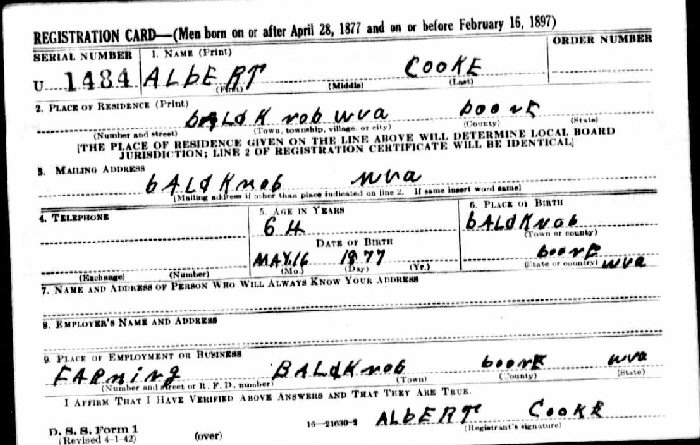 REGISTRATION CARD—(Men born on or after April 28, 1877 and on or before February 16, 1897)
SERIAL NUMBER 1. NAME (Print) ORDER NUMBER
U 1484 ALbERT COOKE
(First) (Middle) (Last)
2. PLACE OF RESIDENCE (Print)
bALd K nob wva booNE
(Number and street) (Town, township, village, or city) (County) (State)
[THE PLACE OF RESIDENCE GIVEN ON THE LINE ABOVE WILL DETERMINE LOCAL BOARD
JURISDICTION; LINE 2 OF REGISTRATION CERTIFICATE WILL BE IDENTICAL]
3. MAILING ADDRESS
bALd Knob wva
[Mailing address if other than place indicated on line 2. If same insert word same]
4. TELEPHONE 5. AGE IN YEARS 6. PLACE OF BIRTH
64 bALd Knob
DATE OF BIRTH (Town or county)
MAY 16 1877 booNE
(Exchange) (Number) (Mo.) (Day) (Yr.) (State or country) wva
7. NAME AND ADDRESS OF PERSON WHO WILL ALWAYS KNOW YOUR ADDRESS
8. EMPLOYER'S NAME AND ADDRESS
9. PLACE OF EMPLOYMENT OR BUSINESS
FARNing BALdKnob booNE wva
(Number and street or R. F. D. number) (Town) (County) (State)
I AFFIRM THAT I HAVE VERIFIED ABOVE ANSWERS AND THAT THEY ARE TRUE.
D. S. S. Form 1 16—21630-2 ALbERT COOKE
(Revised 4-1-42) (over) (Registrant's signature)